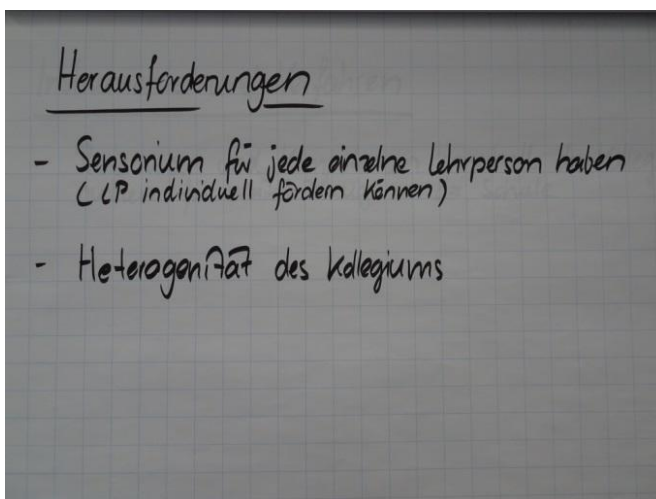 Herausforderungen
- Sensorium für jede einzelne Lehrperson haben
(LP individuell fördern können)
- Heterogenität des Kollegiums